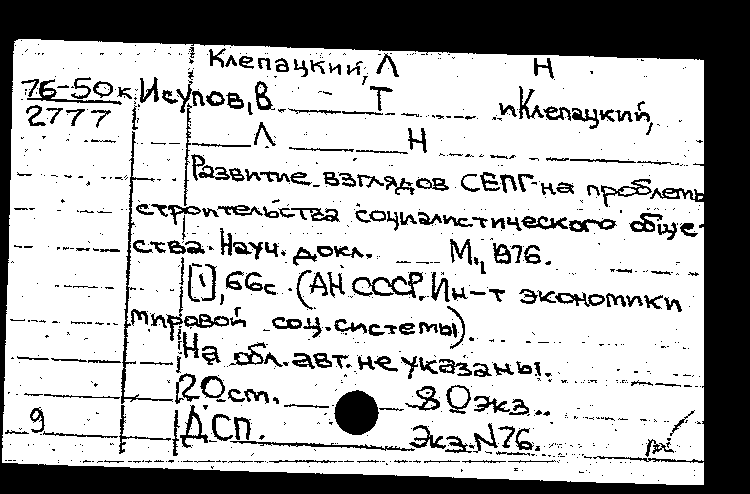 Клепацкий, Л Н
76-50к Исупов, В Т и Клепацкий,
2777
Л Н
Развитие взглядов СЕПГ на проблемы
строительства социалистического обще-
ства. Науч. докл. М., 1976.
[1], 66с. (АН СССР. Ин-т экономики
мировой соц. системы).
На обл. авт. не указаны.
20 ст. 80 экз..
9 ДСП. Экз. N76.